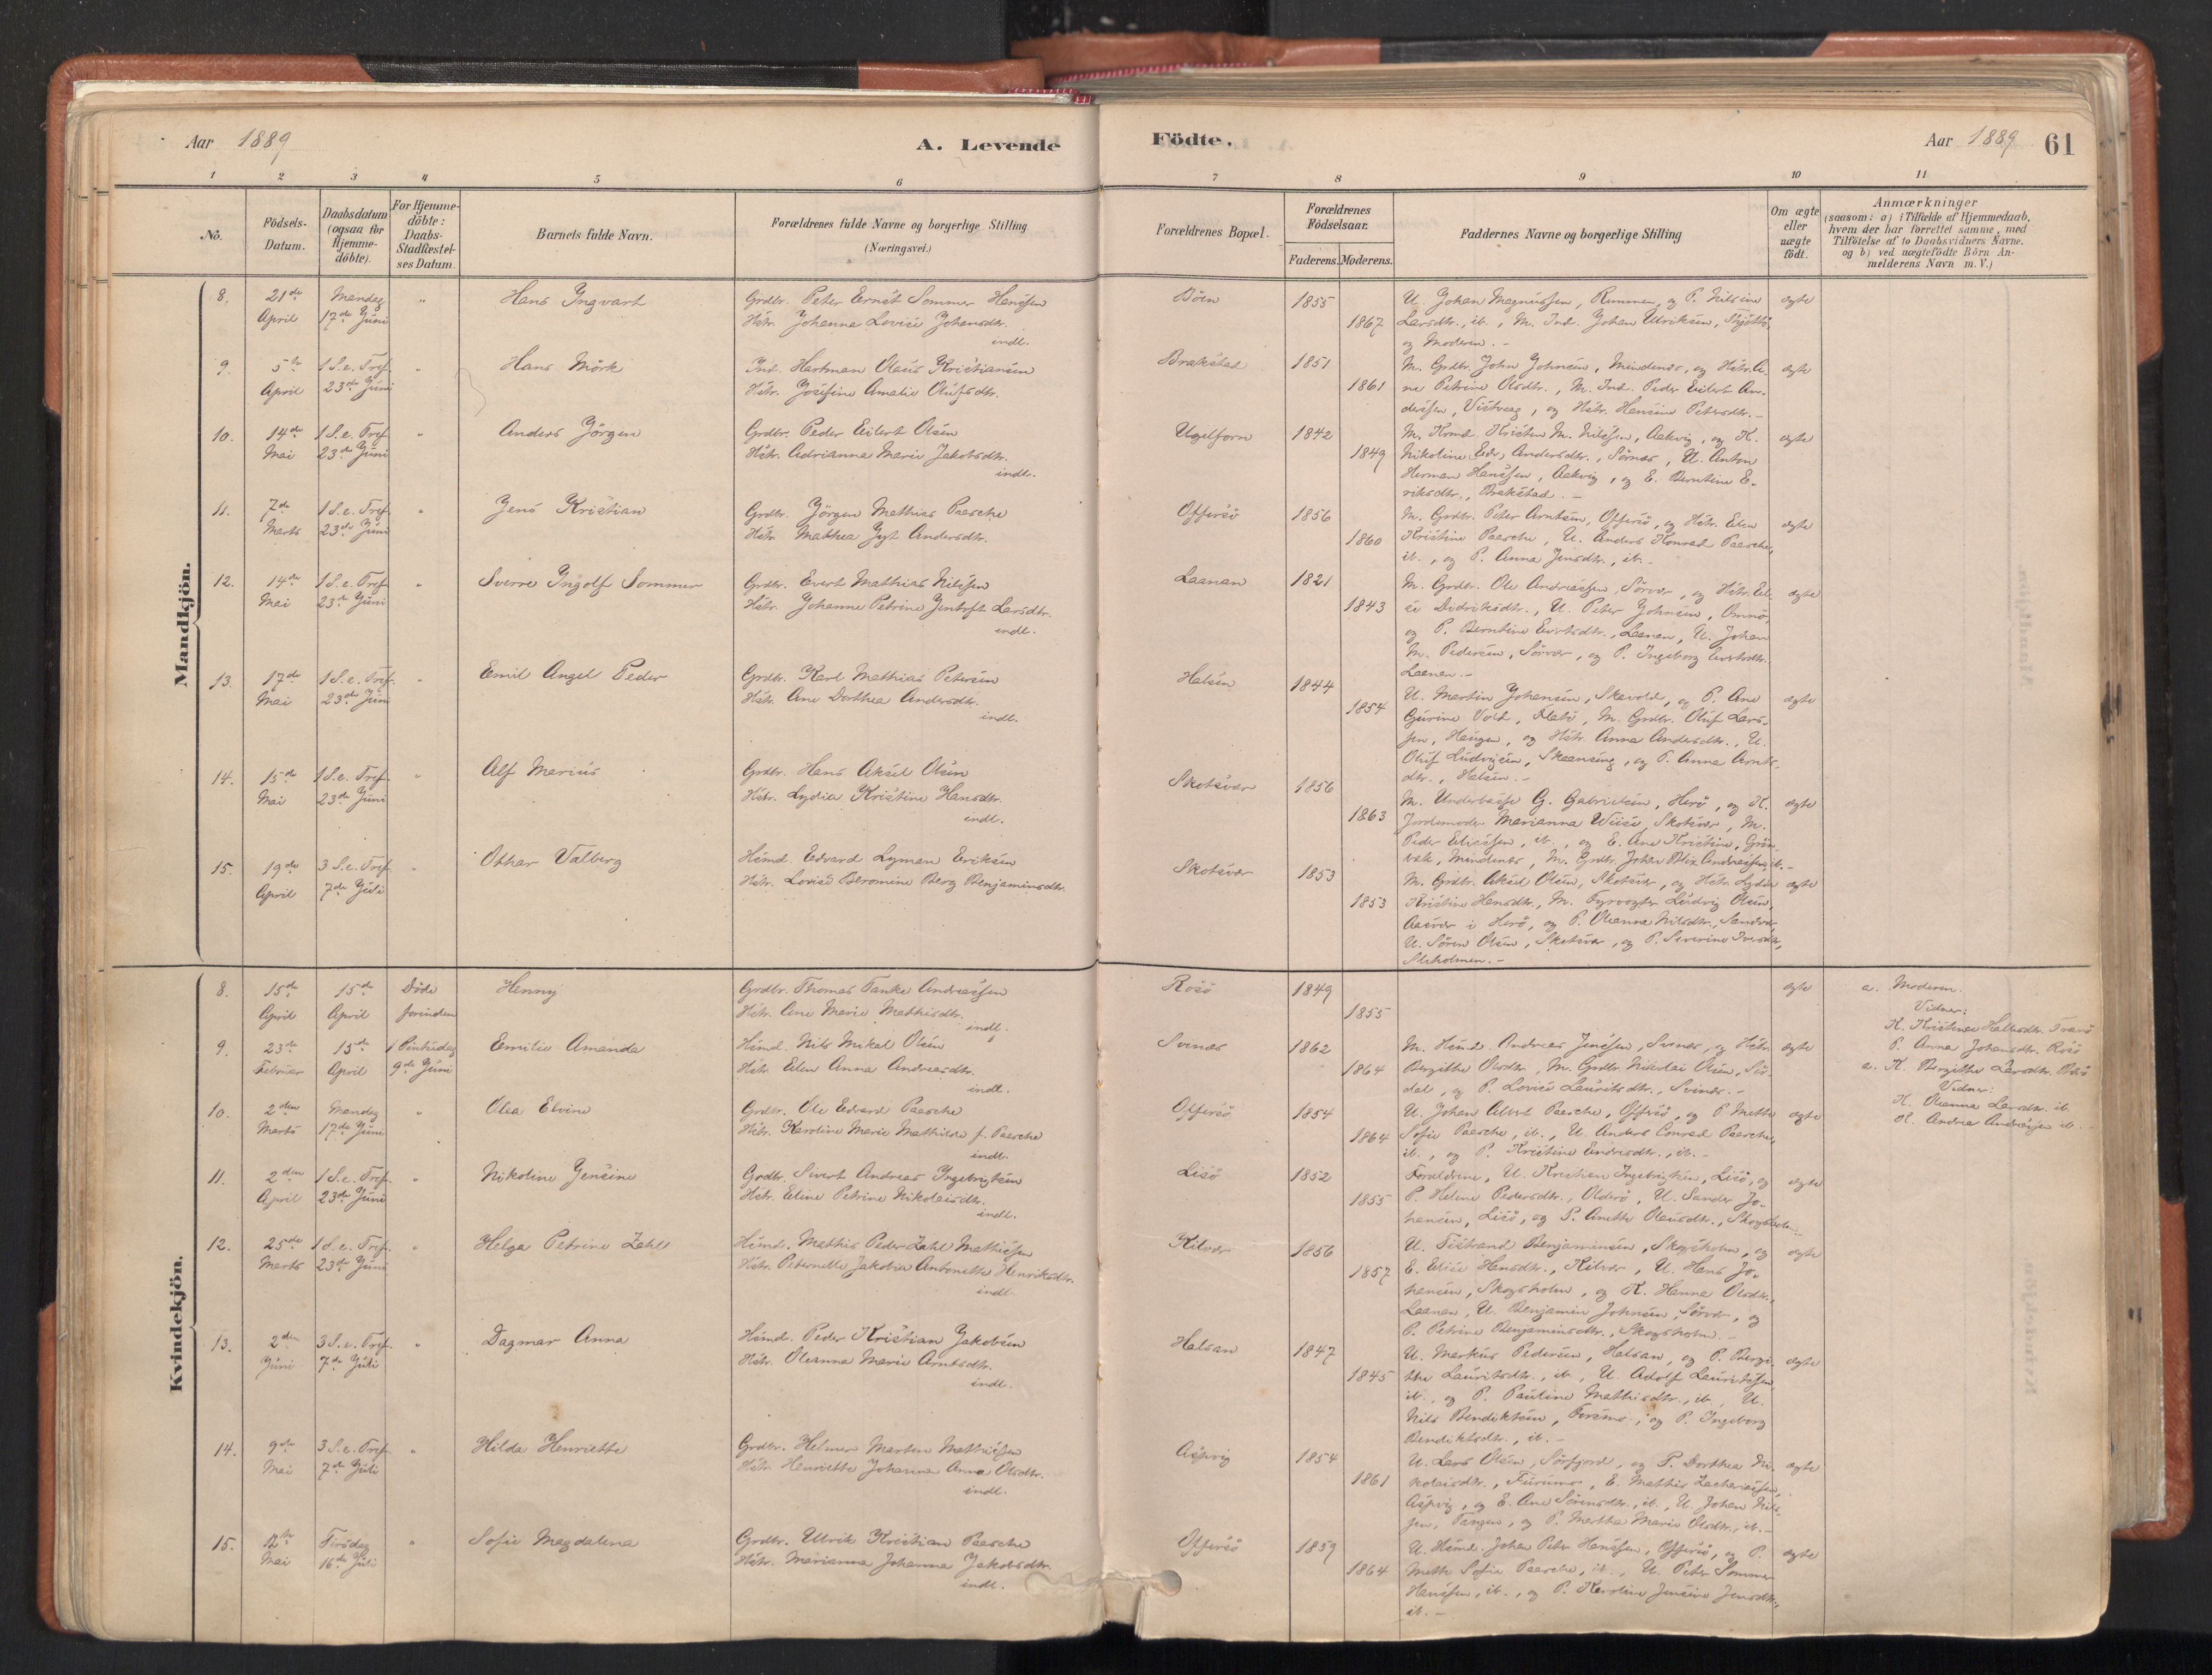 Aar 1889
A. Levende
Födte.
Aar 1889
61
1 2 3 4 5 6 7 8 9 10 11
No.
Födsels-
Datum.
Daabsdatum
(ogsaa for
Hjemme-
döbte).
For Hjemme-
döbte:
Daabs-
Stadfæstel-
ses Datum.
Barnets fulde Navn.
Forældrenes fulde Navne og borgerlige Stilling
(Næringsvei.)
Forældrenes Bopæl.
Forældrenes
Födselsaar.
Faderens. Moderens.
Faddernes Navne og borgerlige Stilling
Om ægte
eller
uægte
födt.
Anmærkninger
(saasom: a) i Tilfælde af Hjemmedaab,
hvem der har forrettet samme, med
Tilföielse af to Daabsvidners Navne.
og b) ved uægtefödte Börn An-
melderens Navn m. V.)
Mandkjön.
8. 21de April Mandag 17de Juni " Hans Ingvart
Grdbr. Peter Ernst Sommer Hanssen
Hstr. Johanna Lovise Johansdtr.
indl.
Böen 1855 1867
U. Johan Magnussen, Rummen, og P. Nilsine
Larsdtr., ib., M. Ind. Johan Ulriksen,
og Moderen. -
ægte
9. 5te April 1 S. e. Tref. 23de Juni " Hans Mörk
Ind. Hartman Olaus Kristiansen
Hstr. Josefine Amalie Olufsdtr.
Brakstad 1851 1861
M. Grdbr. John Johnsen, Mindenes, og Hstr. A-
ne Petrine Olsdtr., M. Ind. Peder Eilert An-
derssen, Vistvaag, og Hstr. Hansine Petersdtr. -
ægte
10. 14de Mai 1 S. e. Tref. 23de Juni " Anders Jörgen
Grdbr. Peder Eilert Olsen
Hstr. Adrianna Marie Jakobsdtr.
indl.
Ugelforn 1842 1849
M. Kristen M. Nilssen, Aakvig, og K.
Nikoline Andersdtr., Sörnes, U. Anton
Herman Hanssen, Aakvig, og E. Berntine E-
riksdtr., Brakstad. -
ægte
11. 7de Marts 1 S. e. Tref. 23de Juni " Jens Kristian
Grdbr. Jörgen Mathias Paasche
Hstr. Mathea Andersdtr.
Offersö 1856 1860
M. Grdbr. Peter Arntsen, Offersö, og Hstr. Elen
Kristine Paasche, U. Anders Konrad Paasche,
ib., og P. Anna Jensdtr., ib. -
ægte
12. 14de Mai 1 S. e. Tref. 23de Juni " Sverre Ingolf Sommer
Grdbr. Evert Mathias Nilssen
Hstr. Johanne Petrine Jentoft Larsdtr.
indl.
Laanan 1821 1843
M. Grdbr. Ole Andreassen, Sörvær, og Hstr. Eli-
se Didriksdtr., U. Peter Johnsen, Omnö,
og P. Berntine Evertsdtr., Laanan, U. Johan
M. Pedersen, Sörvær, og P. Ingeborg Evertsdtr.
Laanan. -
ægte
13. 17de Mai 1 S. e. Tref. 23de Juni " Emil Angel Peder
Grdbr. Karl Mathias Petersen
Hstr. Ane Dorthea Andersdtr.
indl.
Halsen 1844 1854
U. Martin Johansen, Skavold, og P. Ane
Gurine Vold, Flatö, M. Grdbr. Oluf Lars-
sen, Haugen, og Hstr. Anna Andersdtr., U.
Oluf Ludvigsen, og P. Anna Arnts-
dtr., Halsen. -
ægte
14. 15de Mai 1 S. e. Tref. 23de Juni " Alf Marius
Grdbr. Hans Aksel Olsen
Hstr. Lydia Kristine Hansdtr.
indl.
Skotsvær 1856 1863
M. G. Gabrielsen, Herö, og K.
Jordemoder Marianna Skotsvær, M.
Peder Eliassen, ib., og E. Ane Kristine Grön-
bek, Mindenes, M. Grdbr. Johan Blix Andreassen, ib. -
ægte
15. 19de April 3 S. e. Tref. 7de Juli " Othar Valberg
Hsmd. Edvard Lyman Eriksen
Hstr. Lovise Jeromine Berg Benjaminsdtr.
Skotsvær 1853 1853
M. Grdbr. Aksel Olsen, Skotsvær, og Hstr. Lydia
Kristine Hansdtr., M. Fyrvogter Ludvig Olsen,
Aasvær i Herö, og P. Oleanna Nilsdtr., Sandvær,
U. Sören Olsen, Skotsvær, og P. Severine Iversdtr.,
-holmen. -
ægte
Kvindekjön.
8. 15de April 15de April Döde forinden Henny
Grdbr. Thomas Tanke Andreassen
Hstr. Ane Marie Mathisdtr.
indl.
Rosö 1849 1855
ægte
a. Moderen.
Vidner:
K. Kristine Halsdtr. Tranö
P. Anna Johansdtr. Rosö
9. 23de Februar 15de April 1 Pintsedag 9de Juni Emilie Amanda
Hsmd. Nils Mikal Olsen
Hstr. Elen Anna Andreasdtr.
indl.
Svinæs 1862 1864
M. Hsmd. Andreas Jenssen, Svinæs, og Hstr.
Bergithe Olsdtr., M. Grdbr. Nikolai Olsen, Sör-
dal, og P. Lovise Lauritsdtr., Svinæs. -
ægte
a. K. Bergithe Larsdtr. Rosö
Vidner:
K. Oleanna Larsdtr. ib.
M. Andrea Andreassen ib. -
10. 2den Marts Mandag 17de Juni " Olea Elvine
Grdbr. Ole Edvard Paasche
Hstr. Karoline Marie Mathilde f. Paasche
indl.
Offersö 1854 1864
U. Johan Albert Paasche, Offersö, og P. Mette
Sofie Paasche, ib., U. Anders Conrad Paasche,
ib., og P. Kristine Andreasdtr., ib. -
ægte
11. 2den April 1 S. e. Tref. 23de Juni " Nikoline Jensine
Grdbr. Sivert Andreas Ingebrigtsen
Hstr. Eline Petrine Nikolaisdtr.
indl.
Lisö 1852 1855
Forældrene, U. Kristian Ingebrigtsen, Lisö, og
P. Helene Pedersdtr., Olderö, U. Sander Jo-
hansen, Lisö, og P. Anette Olausdtr.,
ægte
12. 25de Marts 1 S. e. Tref. 23de Juni " Helga Petrine Zahl
Hsmd. Mathis Peder Zahl Mathissen
Hstr. Peternelle Jakobia Antonette Henriksdtr.
indl.
Kilvær 1856 1857
U. Tistrand Benjaminsen, Skogsholm, og
E. Elise Hansdtr., Kilvær, U. Hans Jo-
hansen, Skogsholm, og K. Hanna Olsdtr.,
Laanan, U. Benjamin Johnsen, Sörvær, og
P. Petrine Benjaminsdtr., Skogsholm. -
ægte
13. 2den Juni 3 S. e. Tref. 7de Juli " Dagmar Anna
Hsmd. Peder Kristian Jakobsen
Hstr. Oleanna Marie Arntsdtr.
indl.
Halsan 1847 1845
U. Markus Pedersen, Halsan, og P. Bergi-
the Lauritsdtr., ib., U. Adolf Lauritssen,
ib., og P. Pauline Mathisdtr., ib., U.
Nils Bendiktsen, Forsmo, og P. Ingeborg
Bendiktsdtr., ib. -
ægte
14. 9de Mai 3 S. e. Tref. 7de Juli " Hilda Henriette
Grdbr. Helmer Martin Mathissen
Hstr. Henriette Johanna Anna Olsdtr.
indl.
Aspvig 1854 1861
U. Lars Olsen, Sörfjord, og P. Dorthea Ni-
kolaisdtr., Furumo, E. Mathis Zachariassen,
Aspvig, og E. Ane Sörensdtr., ib., U. Johan Nils-
sen, Tangen, og P. Martha Marie Olsdtr., ib. -
ægte
15. 12te Mai Tirsdag 16de Juli " Sofie Magdalena
Grdbr. Ulrik Kristian Paasche
Hstr. Marianna Johanna Jakobsdtr.
indl.
Offersö 1859 1864
U. Hsmd. Johan Peter Hanssen, Offersö, og P.
Mette Sofie Paasche, ib., U. Peter Sommer
Hanssen, ib., og P. Karoline Jensine Jensdtr.,
ib. -
ægte